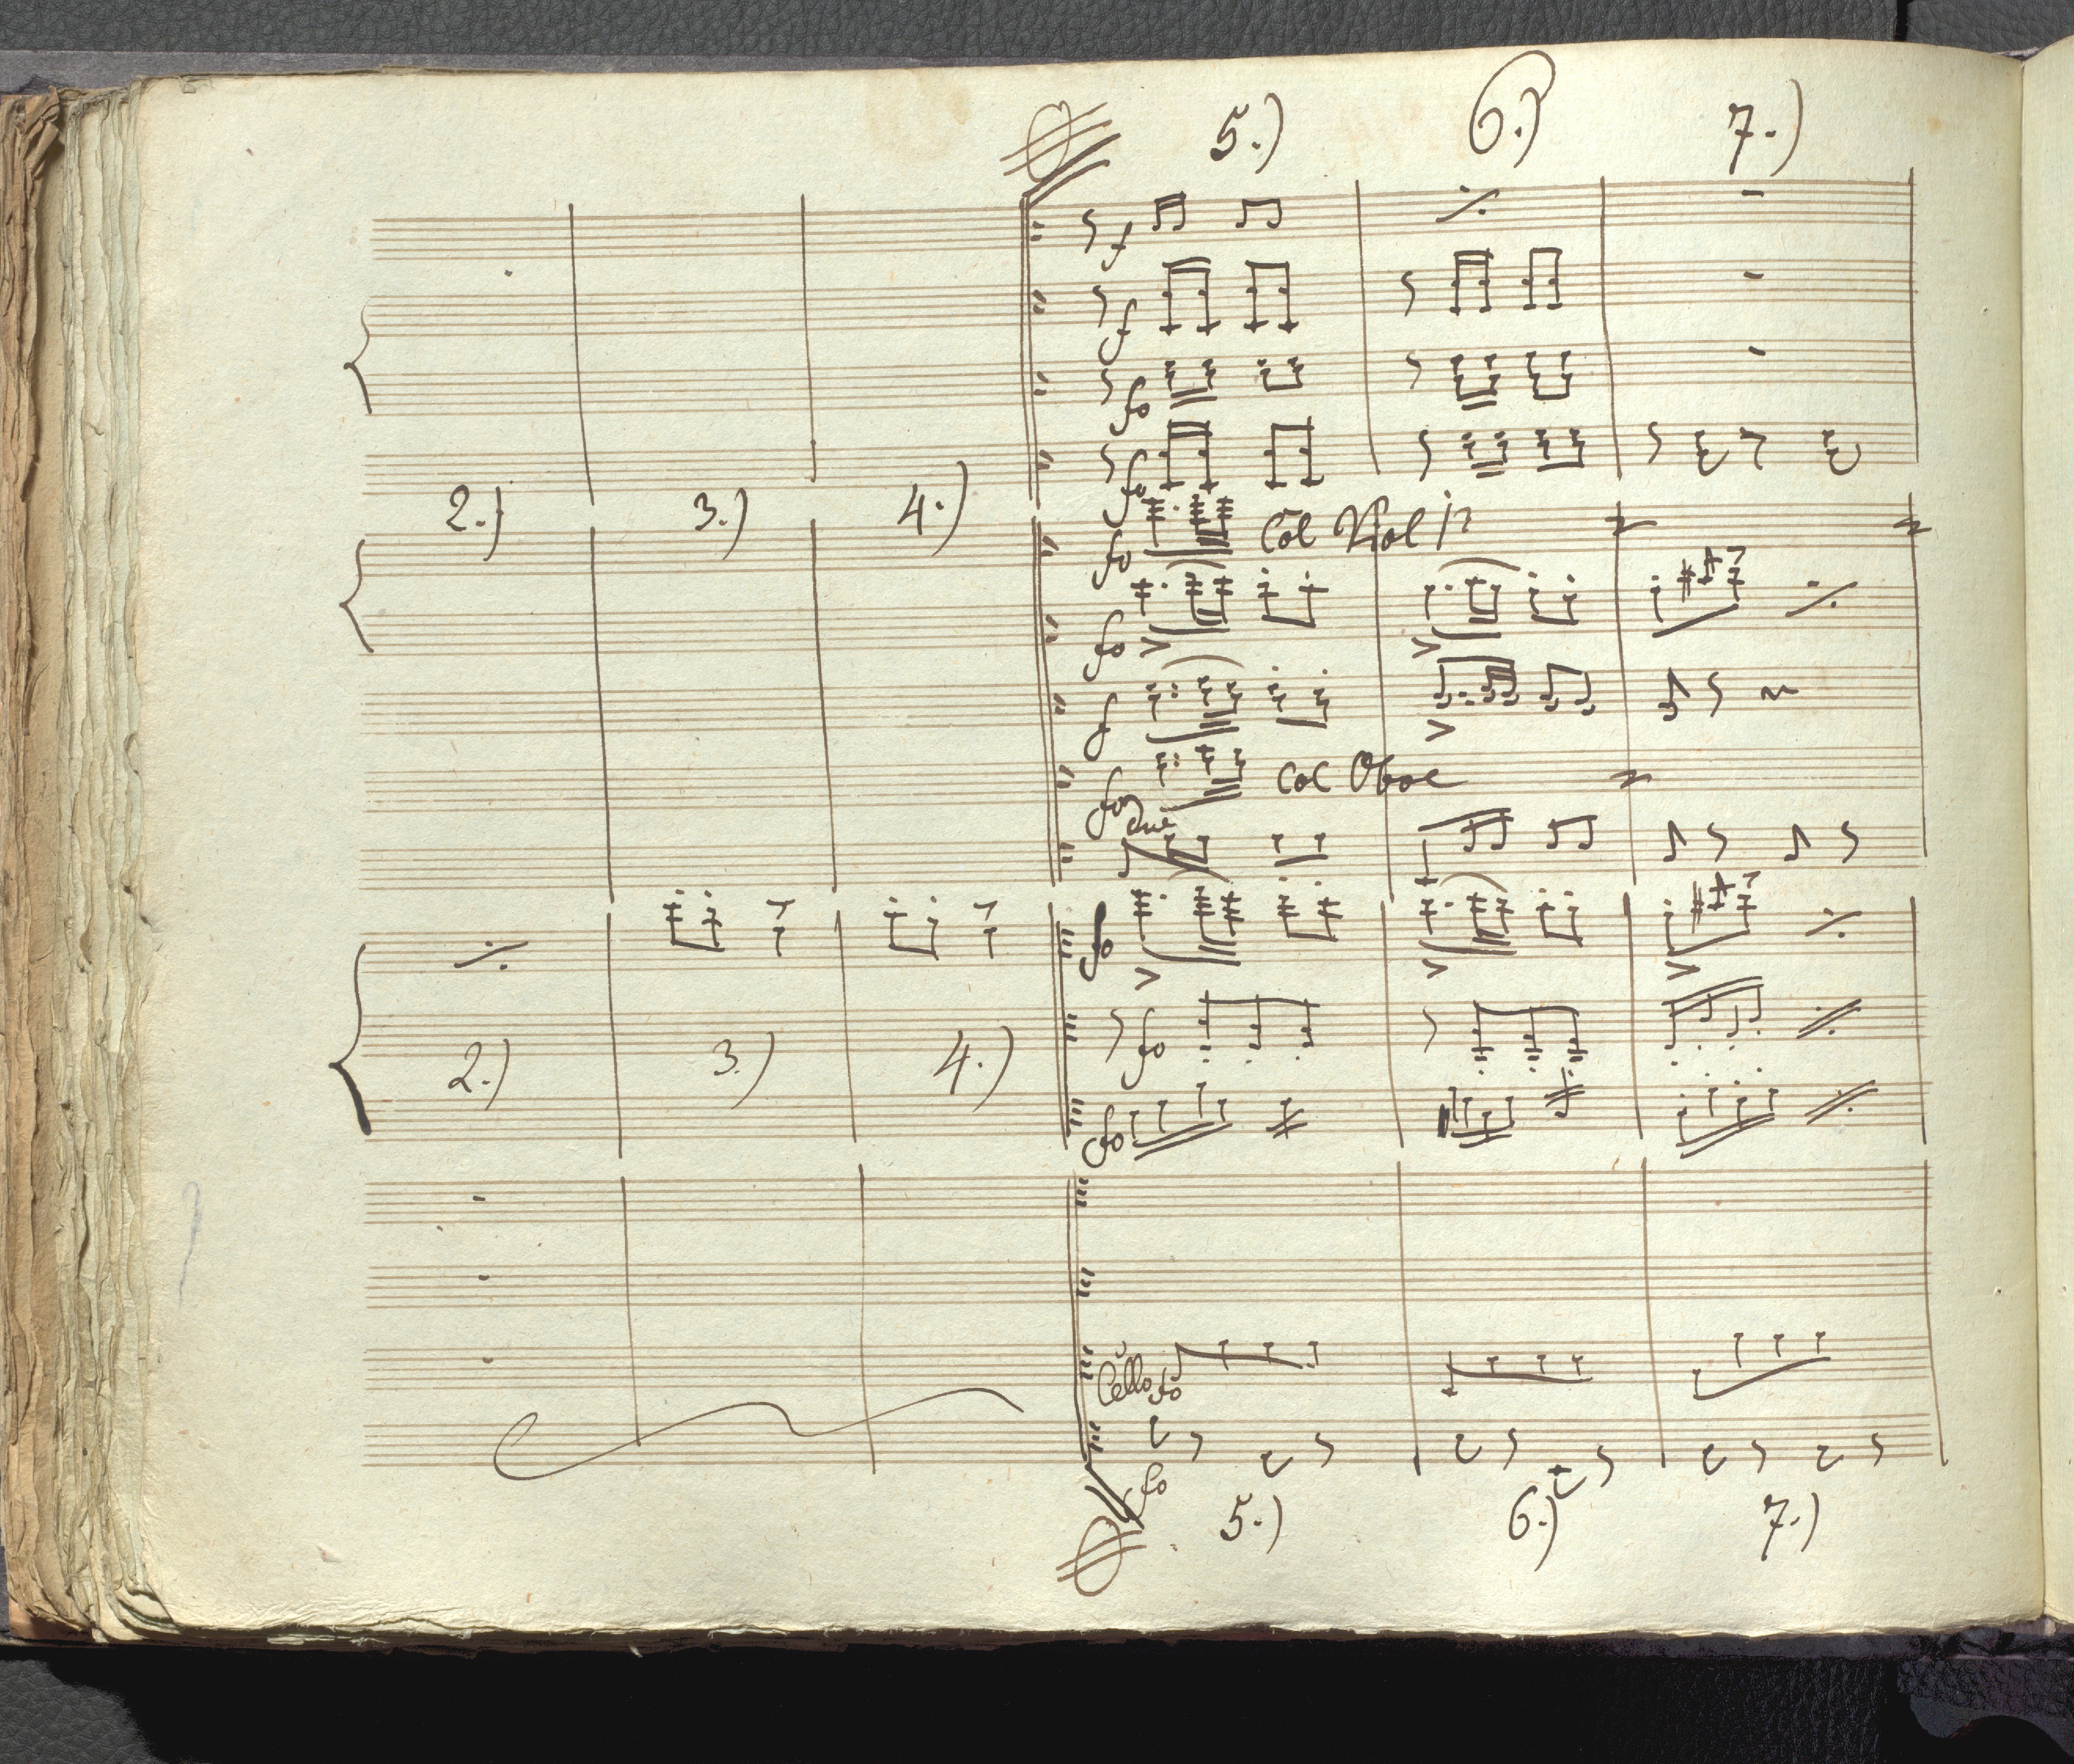 5.) 6.) 7.)
f
f
fo
fo
2.) 3.) 4.)
fo Col Viol 1º
fo
f
fo Col Oboe
due
fo
2.) 3.) 4.)
fo
fo
Cello fo
fo
5.) 6.) 7.)